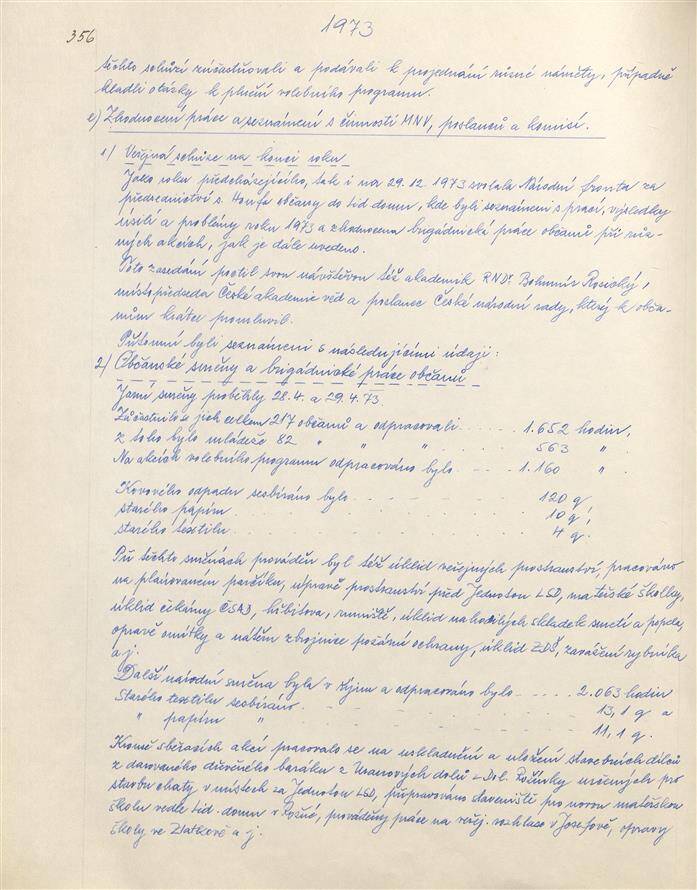 356
1973
těchto schůzí zúčastňovali a podávali k projednání různé náměty, případně
kladli otázky k plnění volebního programu.
e) Zhodnocení práce a seznámení s činností MNV, poslanců a komisí.
1) Veřejná schůze na konci roku
Jako roku předcházejícího, tak i na 29.12.1973 svolala Národní fronta za
předsednictví s. Honfa občany do lid domu, kde byli seznámeni s prací, výsledky
úsilí a problémy roku 1973 a zhodnocena brigádnická práce občanů při růz-
ných akcích, jak je dále uvedeno.
Toto zasedání poctil svou návštěvou též akademik RNDr Bohumír Rosický,
místopředseda České akademie věd a poslanec České národní rady, který k obča-
nům krátce promluvil.
Přítomní byli seznámeni s následujícími údaji:
2) Občanské směny a brigádnické práce občanů
Jarní směny proběhly 28.4. a 29.4.73.
Zúčastnilo se jich celkem 217 občanů a odpracovali . . . . 1.652 hodin,
z toho bylo mládeže 82 " " " 563 " .
Na akcích volebního programu odpracováno bylo . . . . 1.160 " .
Kovového odpadu sesbíráno bylo . . . . . . 120 q
starého papíru . . . . . . 10 q,
starého textilu . . . . . . 4 q.
Při těchto směnách prováděn byl též úklid veřejných prostranství, pracováno
na plánovaném parčíku, úpravě prostranství před Jednotou LSD, mateřské školky,
úklid čekárny ČSAD, hřbitova, rumiště, úklid nahodilých skládek smetí a popela,
opravě omítky a nátěru zbrojnice požární ochrany, úklid ZDŠ, zavážení rybníka
a j.
Další národní směna byla v říjnu a odpracováno bylo . . . . 2.063 hodin
Starého textilu sesbíráno . . . . . . 13,1 q a
" papíru " . . . . . . 11,1 q.
Kromě sběrových akcí pracovalo se na uskladnění a uložení stavebních dílců
z darovaného dřevěného baráku z Uranových dolů z Dol. Rožínky určených pro
stavbu chaty, v místech za Jednotou LSD, připravováno staveniště pro novou mateřskou
školu vedle lid. domu v Rožné, prováděny práce na veřej. rozhlase v Josefově, opravy
školy ve Zlatkově a j.